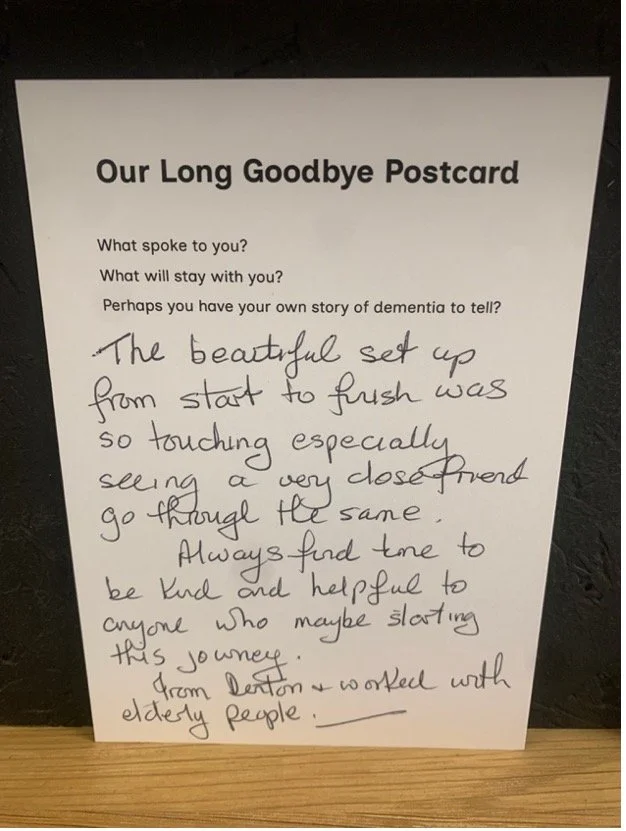 Our Long Goodbye Postcard
What spoke to you?
What will stay with you?
Perhaps you have your own story of dementia to tell?
The beautiful set up
from start to finish was
so touching especially
seeing a very close friend
go through the same.
Always find time to
be kind and helpful to
anyone who maybe starting
this journey.
From Denton + worked with
elderly people.